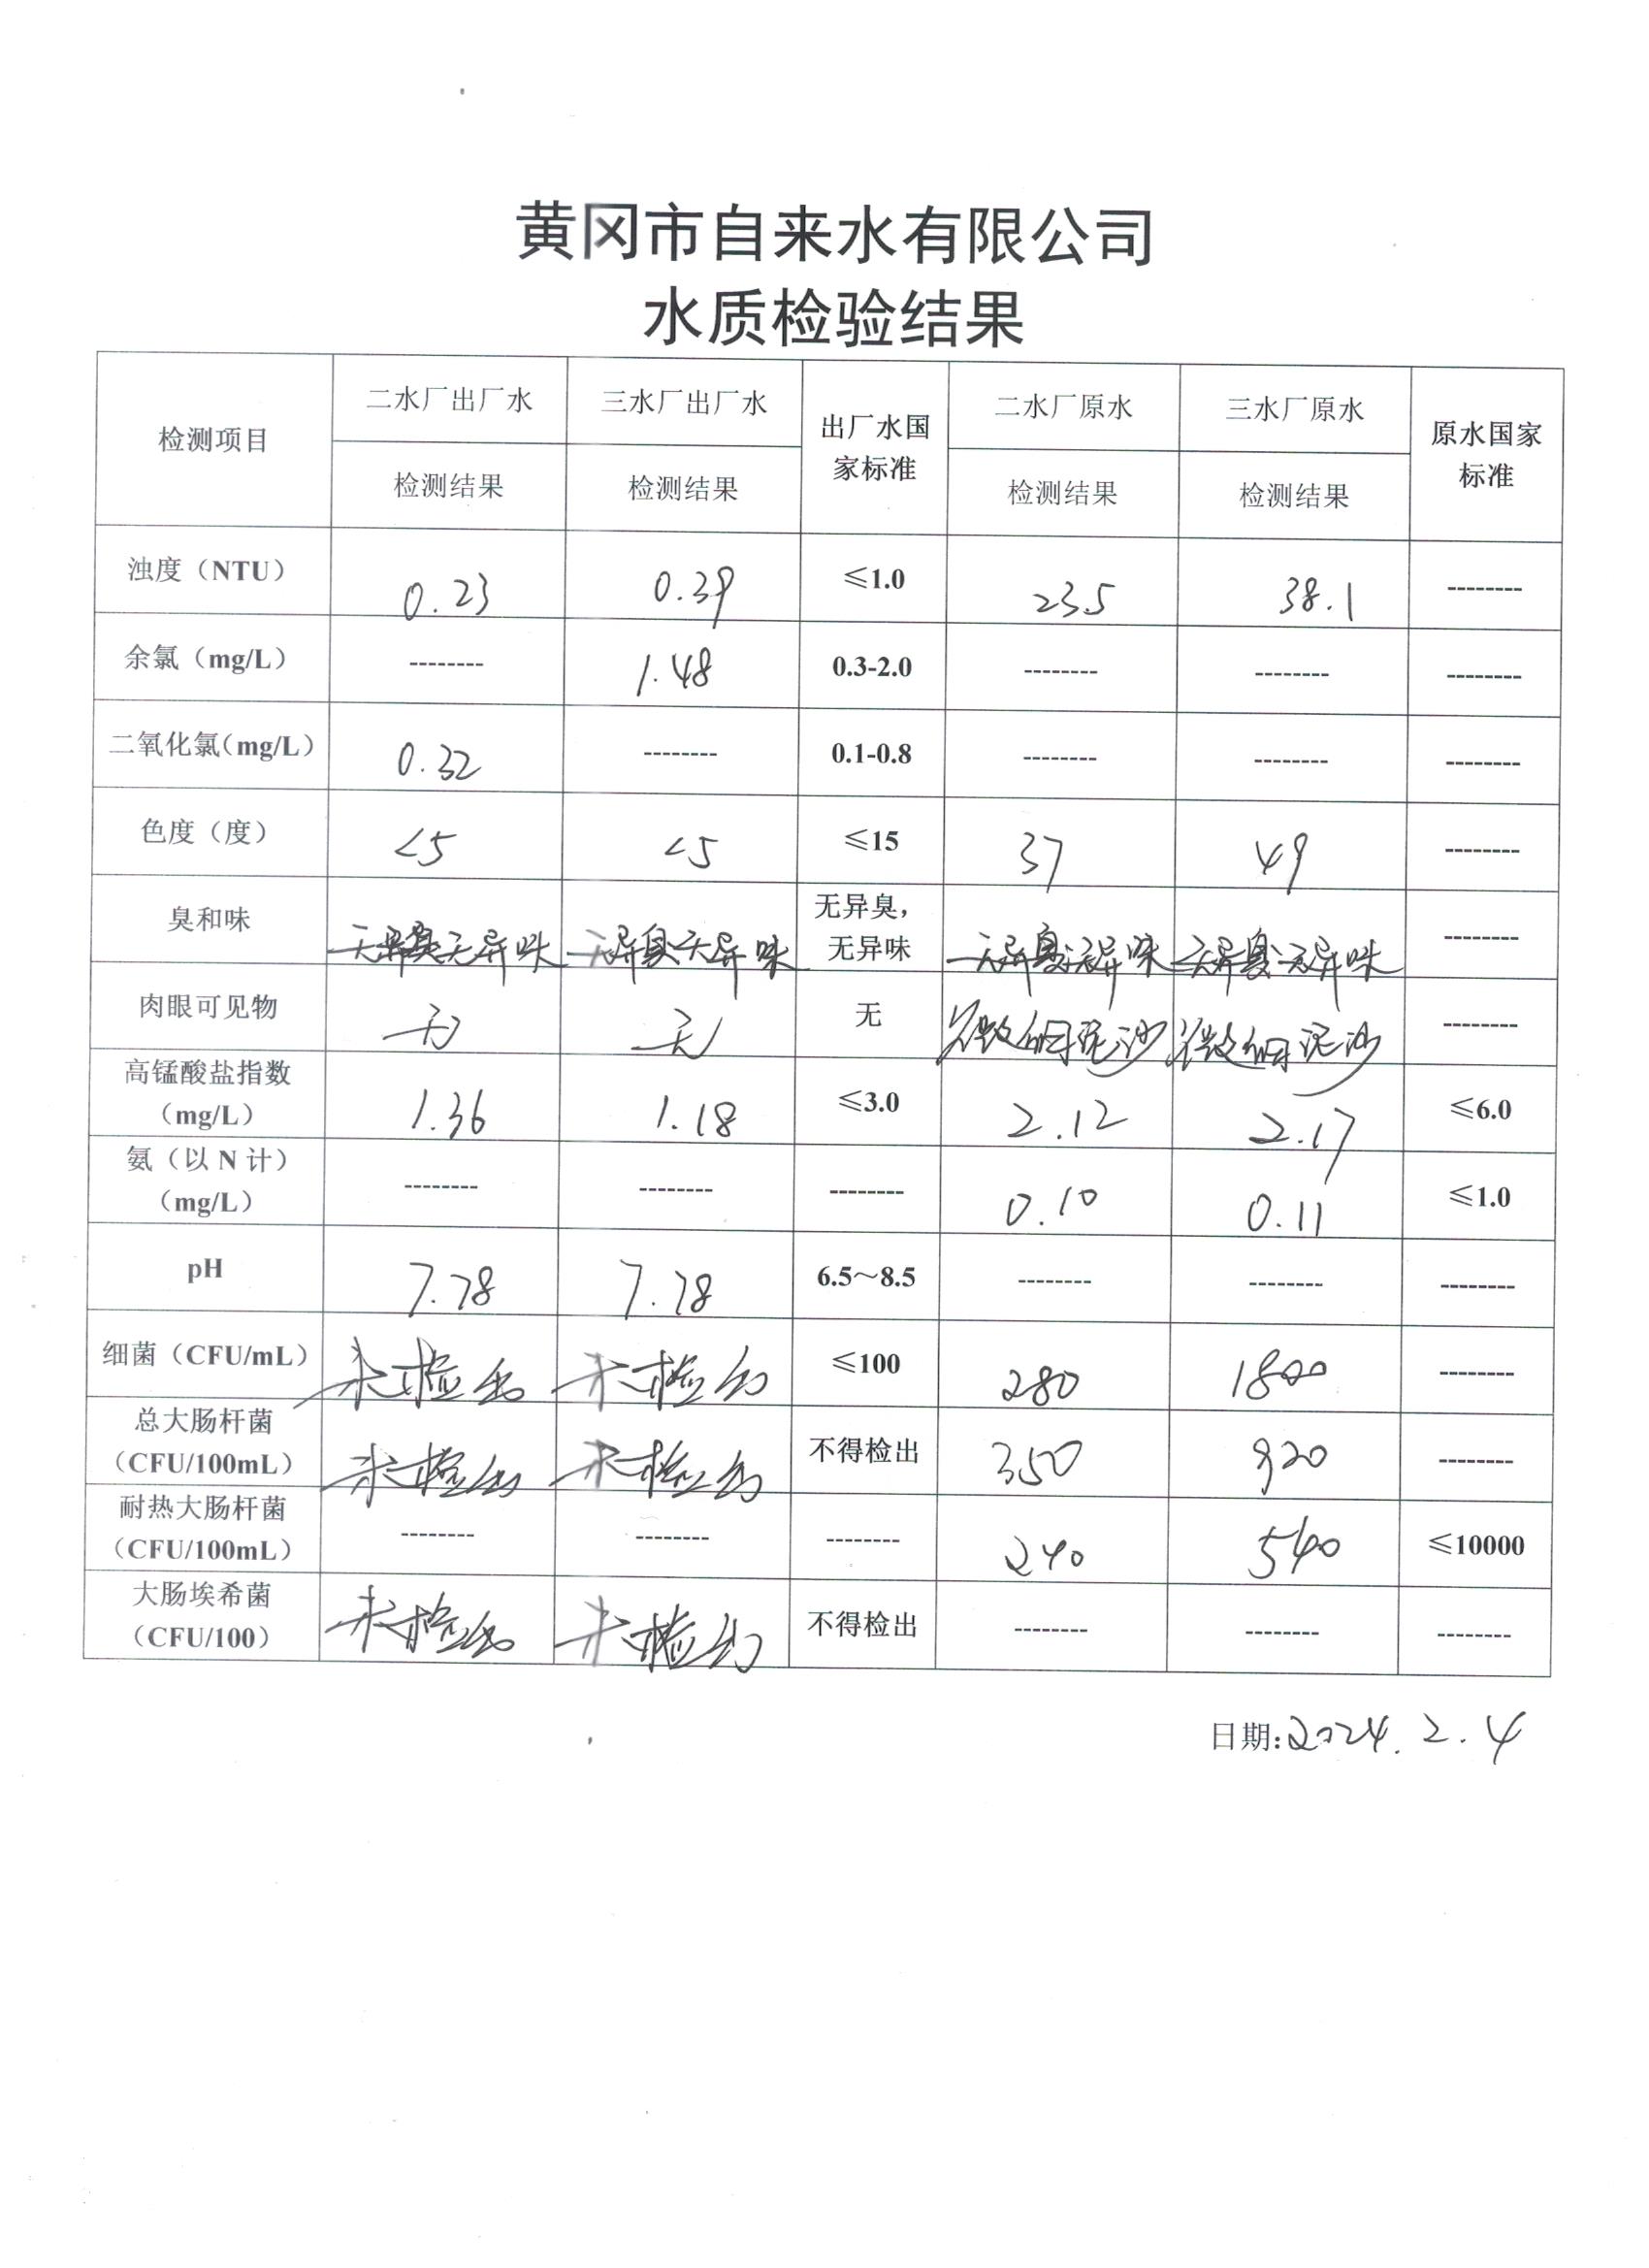 黄冈市自来水有限公司
水质检验结果
检测项目 二水厂出厂水 三水厂出厂水 出厂水国家标准 二水厂原水 三水厂原水 原水国家标准
检测结果 检测结果 检测结果 检测结果
浊度（NTU） 0.23 0.39 ≤1.0 23.5 38.1 --------
余氯（mg/L） -------- 1.48 0.3-2.0 -------- -------- --------
二氧化氯（mg/L） 0.32 -------- 0.1-0.8 -------- -------- --------
色度（度） <5 <5 ≤15 37 49 --------
臭和味 无异臭无异味 无异臭无异味 无异臭，无异味 无异臭无异味 无异臭无异味 --------
肉眼可见物 无 无 无 微细泥沙 微细泥沙 --------
高锰酸盐指数（mg/L） 1.36 1.18 ≤3.0 2.12 2.17 ≤6.0
氨（以 N 计）（mg/L） -------- -------- -------- 0.10 0.11 ≤1.0
pH 7.78 7.78 6.5～8.5 -------- -------- --------
细菌（CFU/mL） 未检出 未检出 ≤100 280 1800 --------
总大肠杆菌（CFU/100mL） 未检出 未检出 不得检出 350 920 --------
耐热大肠杆菌（CFU/100mL） -------- -------- -------- 240 540 ≤10000
大肠埃希菌（CFU/100） 未检出 未检出 不得检出 -------- -------- --------
日期:2024.2.4